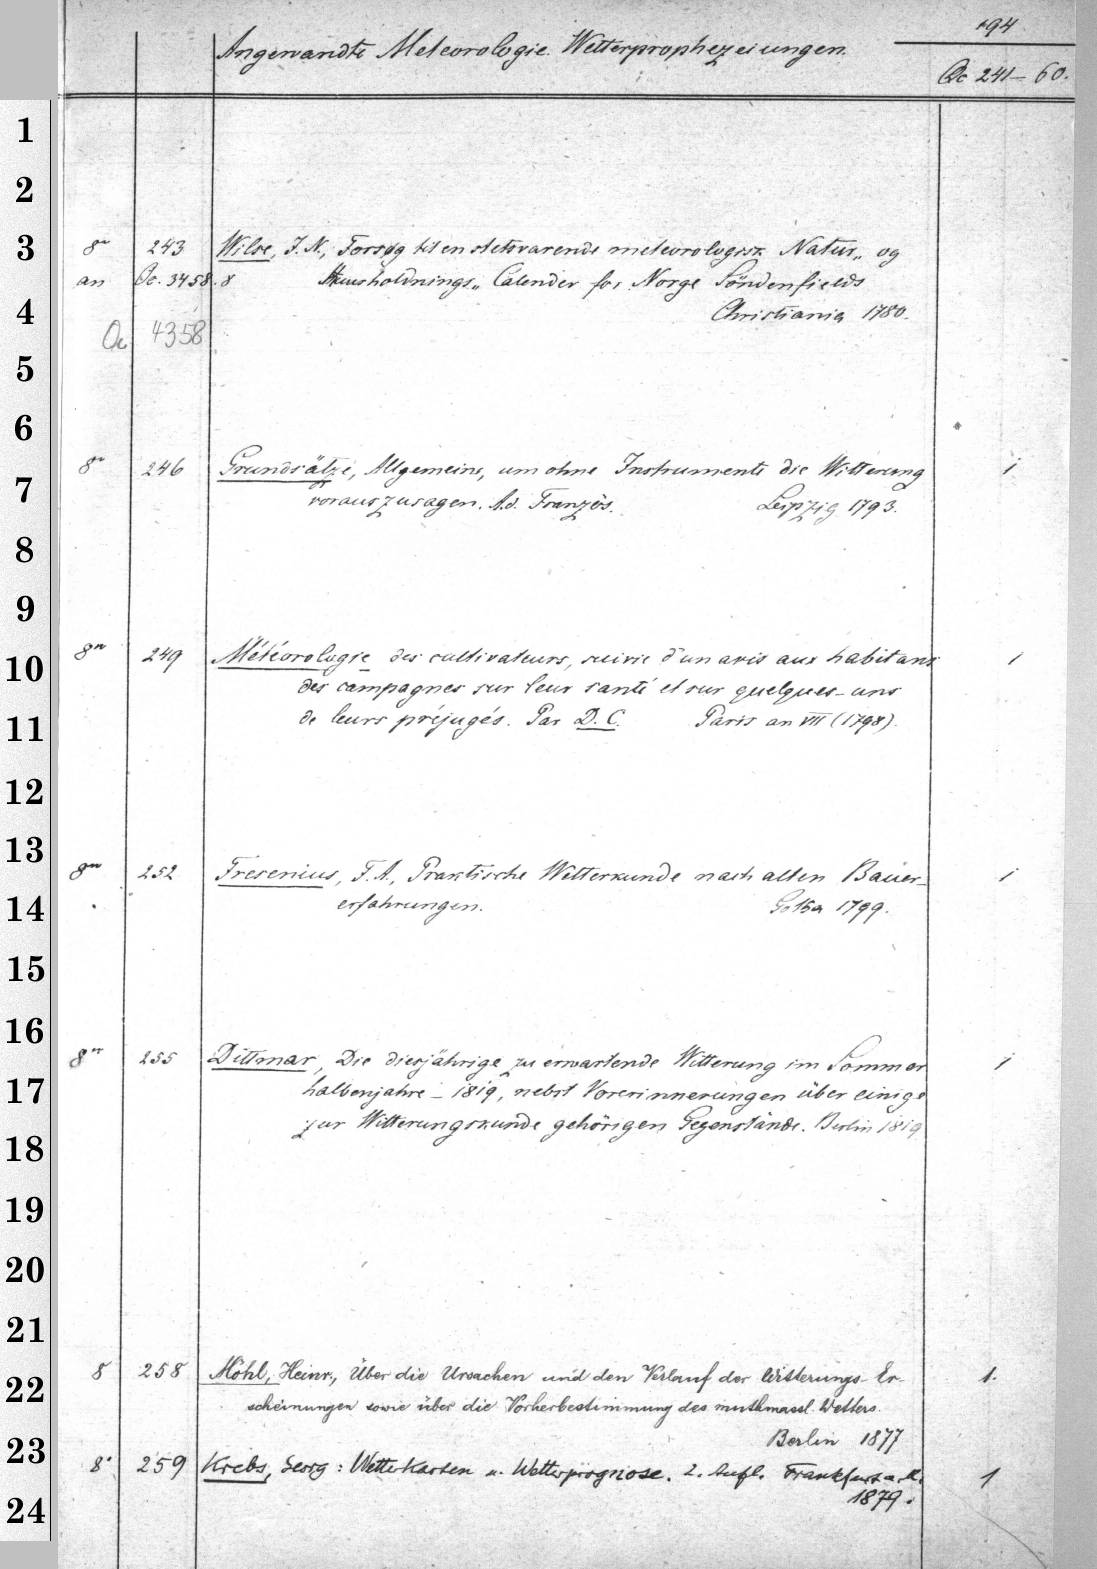 194
Angewandte Meteorologie. Wetterprophezeiungen.
Qc 241–60.
1
2
3
8° 243 Wilse, J. N., Forsøg til en stetsvarende meteorologisk Natur- og
an Oc. 3458.8 Huusholdnings- Calender for Norge Söndenfields
4
Christiania 1780.
Oc 4358
5
6
7
8° 246 Grundsätze, Allgemeine, um ohne Instrumente die Witterung 1
vorauszusagen. A. d. Französ. Leipzig 1793.
8
9
10
8° 249 Météorologie des cultivateurs, suivie d'un avis aux habitans 1
des campagnes sur leur santé et sur quelques-uns
11
de leurs préjugés. Par D. C. Paris an VII (1798).
12
13
8° 252 Fresenius, F. A., Praktische Wetterkunde nach alten Bauer- 1
14
erfahrungen. Gotha 1799.
15
16
8° 255 Dittmar, Die diesjährige zu erwartende Witterung im Sommer 1
17
halbenjahre – 1819, nebst Vorerinnerungen über einige
18
zur Witterungskunde gehörigen Gegenstände. Berlin 1819
19
20
21
22
8 258 Möhl, Heinr., Über die Ursachen und den Verlauf der Witterungs-Er- 1.
scheinungen sowie über die Vorherbestimmung des muthmassl. Wetters.
Berlin 1877
23
8° 259 Krebs, Georg: Wetterkarten u. Wetterprognose. 2. Aufl. Frankfurt a. M. 1
24
1879.